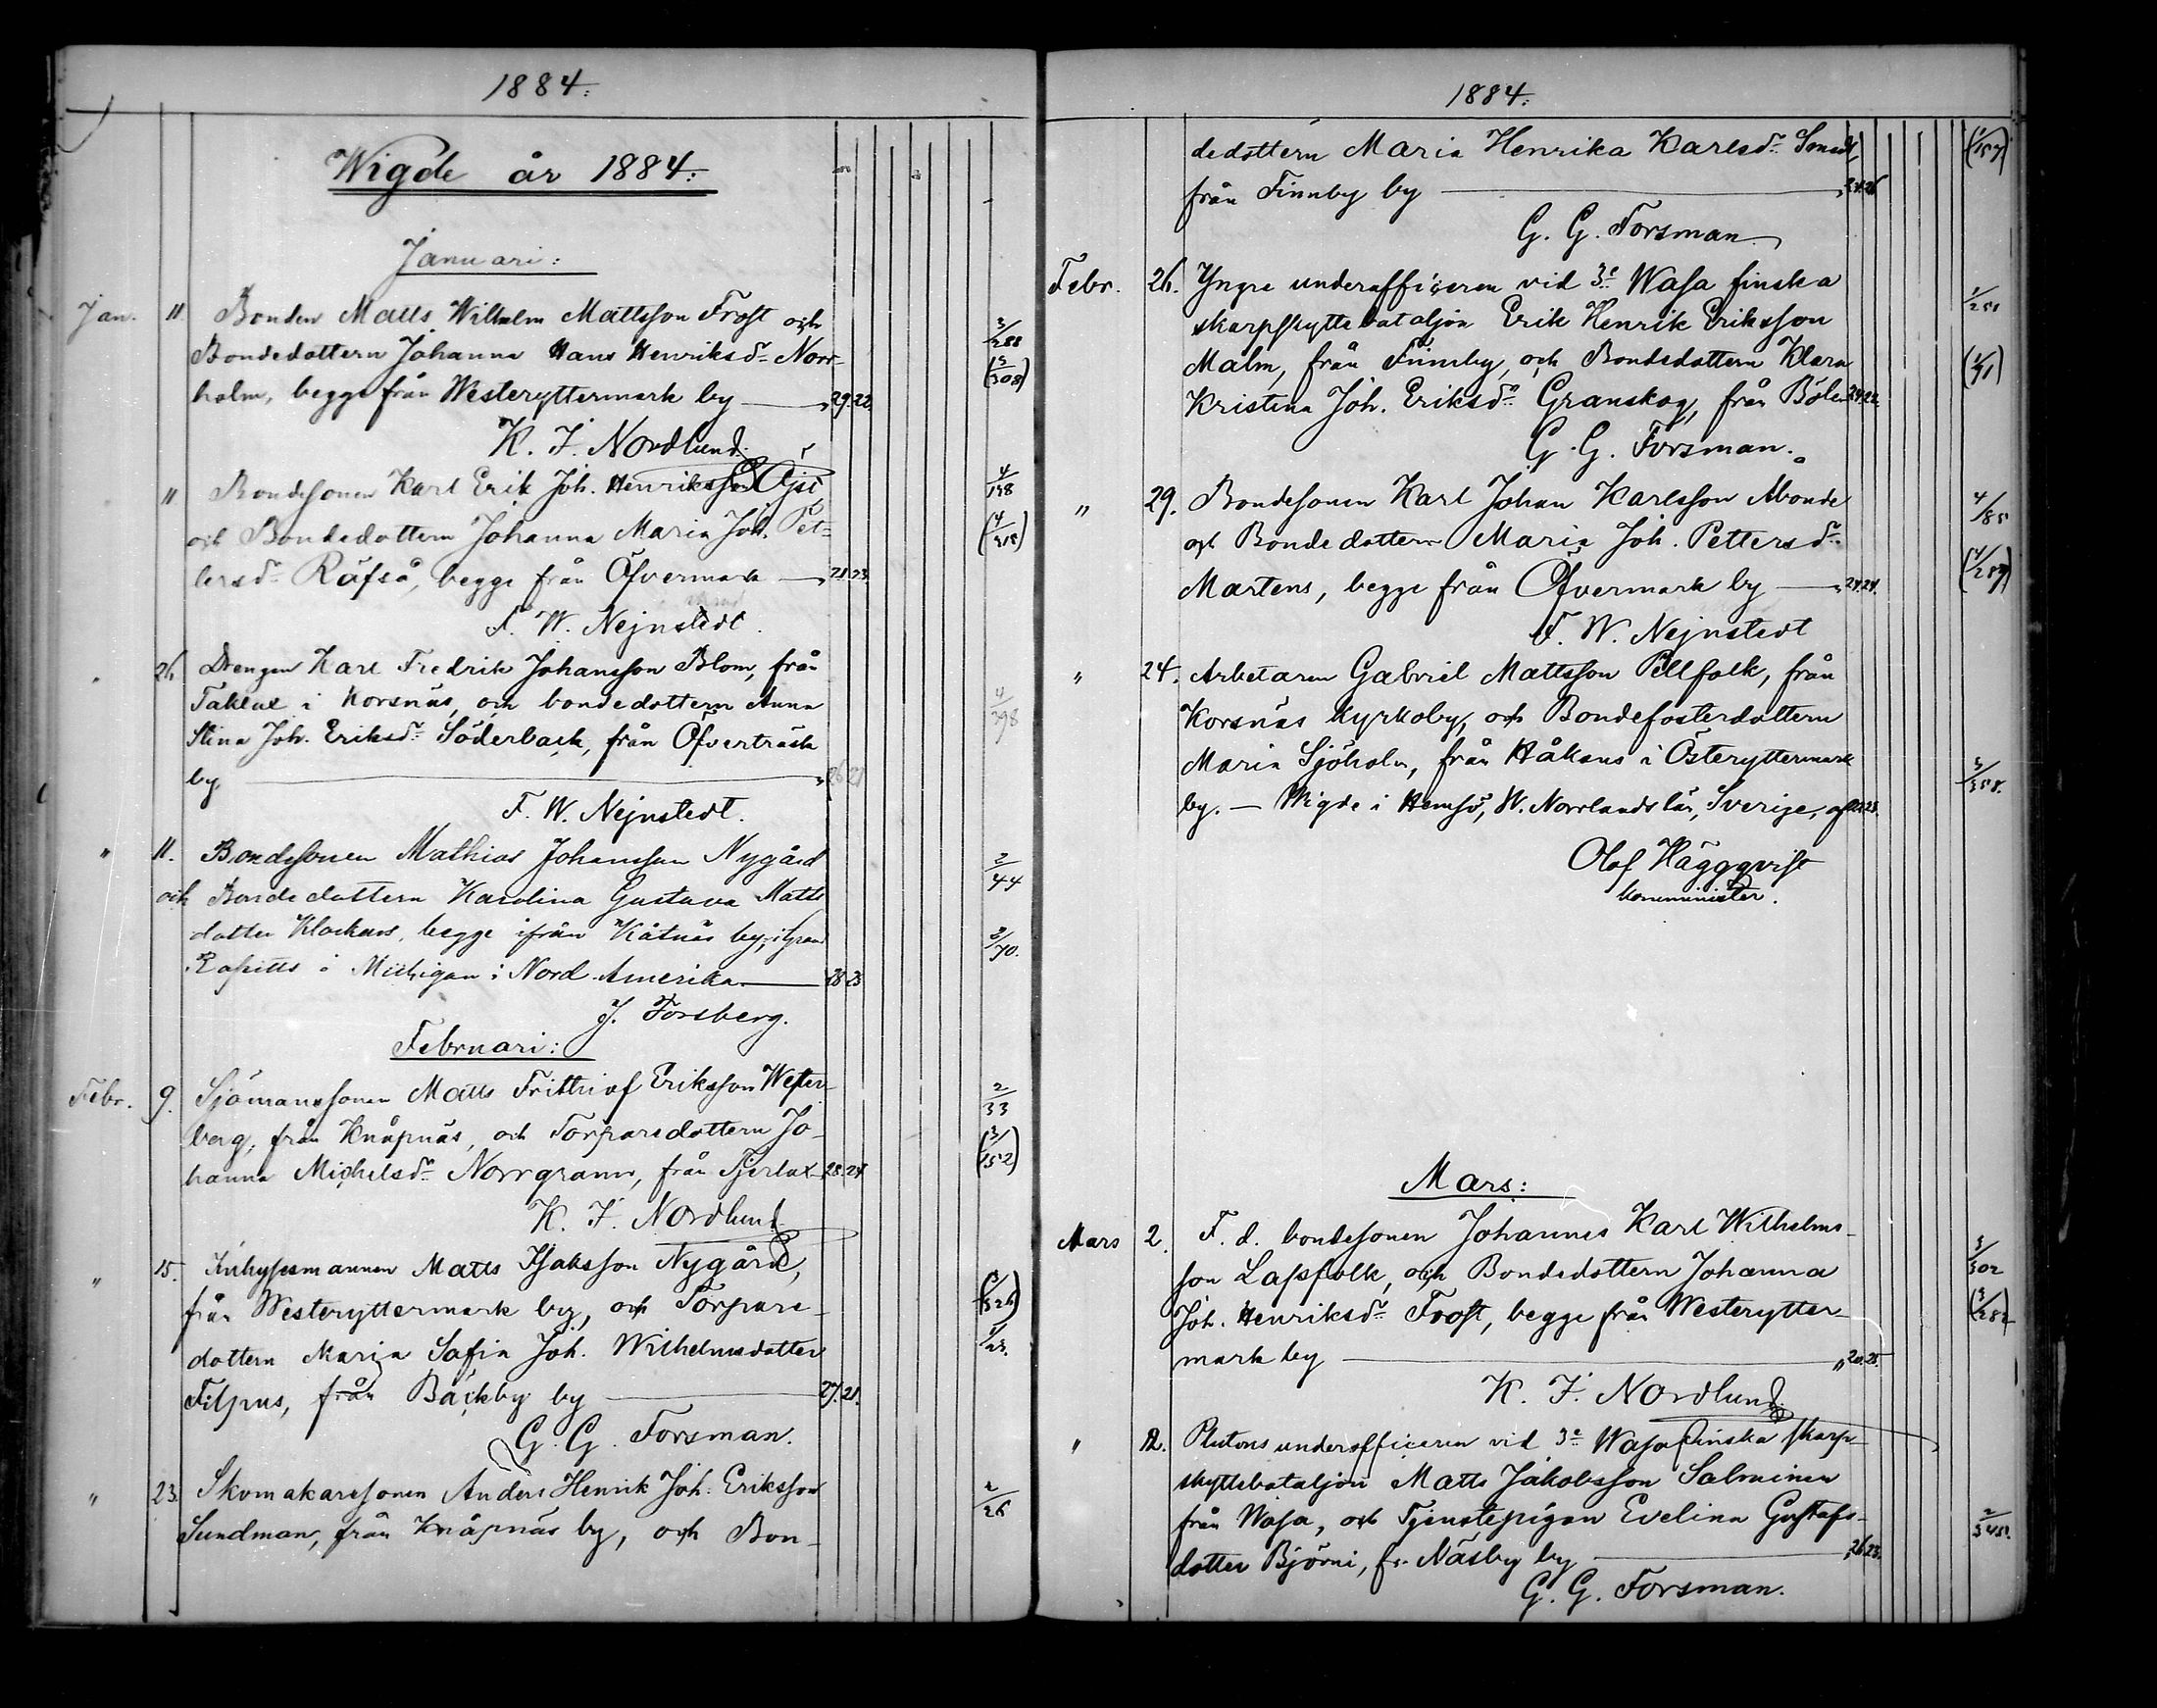 1884.
Wigde år 1884.
Januari:
Jan. 11 Bonden Matts Wilhelm Mattsson Frost och 3/288
Bondedottern Johanna Hans Henriksdr Norr- (5/308)
holm, begge från Westeryttermark by — 29. 22.
K. F. Nordlund.
" Bondesonen Karl Erik Joh. Henriksson Öjst, 4/198
och Bondedottern Johanna Maria Joh. Pet- (4/315)
tersdr Räfså, begge från Öfvermark — 21 23
F. W. Nejnstedt.
26 Drengen Karl Fredrik Johansson Blom, från
Taklax i Korsnäs, och bondedottern Anna 4/398
Stina Joh. Eriksdr Söderback, från Öfverträsk
by — 26 21
F. W. Nejnstedt.
" 11. Bondesonen Mathias Johansson Nygård 2/44
och Bondedottern Karolina Gustava Matts
dotter Klockars, begge ifrån Kåtnäs by, i Grand 2/70.
Rapitts i Michigan i Nord Amerika. — 28 23
J. Forsberg.
Februari:
Febr. 9. Sjömanssonen Matts Frithiof Eriksson Wester- 2/33
berg, från Knåpnäs, och Torparedottern Jo- (3/152)
hanna Michelsdr Norrgrann, från Tjerlax — 28. 24
K. F. Nordlund
" 15. Inhysesmannen Matts Isaksson Nygård,
från Westeryttermark by, och Torpare-
dottern Maria Sofia Joh. Wilhelmsdotter
Filpus, från Bäckby by — 27. 21.
G. G. Forsman.
" 23. Skomakaresonen Anders Henrik Joh. Eriksson 2/26
Sundman, från Knåpnäs by, och Bon-
1884.
dedottern Maria Henrika Karlsdr
från Finnby by — 24. 26
G. G. Forsman.
Febr. 26. Yngre underofficeren vid 3e Wasa finska 1/251
skarpskyttebataljon Erik Henrik Eriksson
Malm, från Finnby, och Bondedottern Klara (1/91)
Kristina Joh. Eriksdr Granskog, från Bölen 24. 22.
G. G. Forsman.
" 29. Bondesonen Karl Johan Karlsson Abonde 4/85
och Bondedottern Maria Joh. Pettersdr
Martens, begge från Öfvermark by — 24. 24.
F. W. Nejnstedt
" 24. Arbetaren Gabriel Mattsson Pellfolk, från
Korsnäs kyrkoby, och Bondefosterdottern
Maria Sjöholm, från Håkans i Österyttermark 5/358.
by. — Wigde i Hemsö, W. Norrlands län, Sverige, af
Olof Häggqvist
komminister.
Mars:
Mars 2. F. d. bondesonen Johannes Karl Wilhelms- 3/302
son Lassfolk, och Bondedottern Johanna
Joh. Henriksdr Frost, begge från Westerytter-
mark by — " 20. 25.
K. F. Nordlund.
" 12. Plutons underofficeren vid 3e Wasa finska skarp-
skyttebataljon Matts Jakobsson Salminen
från Wasa, och Tjenstepigan Evelina Gustafs- 2/345.
dotter Björni, fr. Näsby by — 26. 23.
G. G. Forsman.